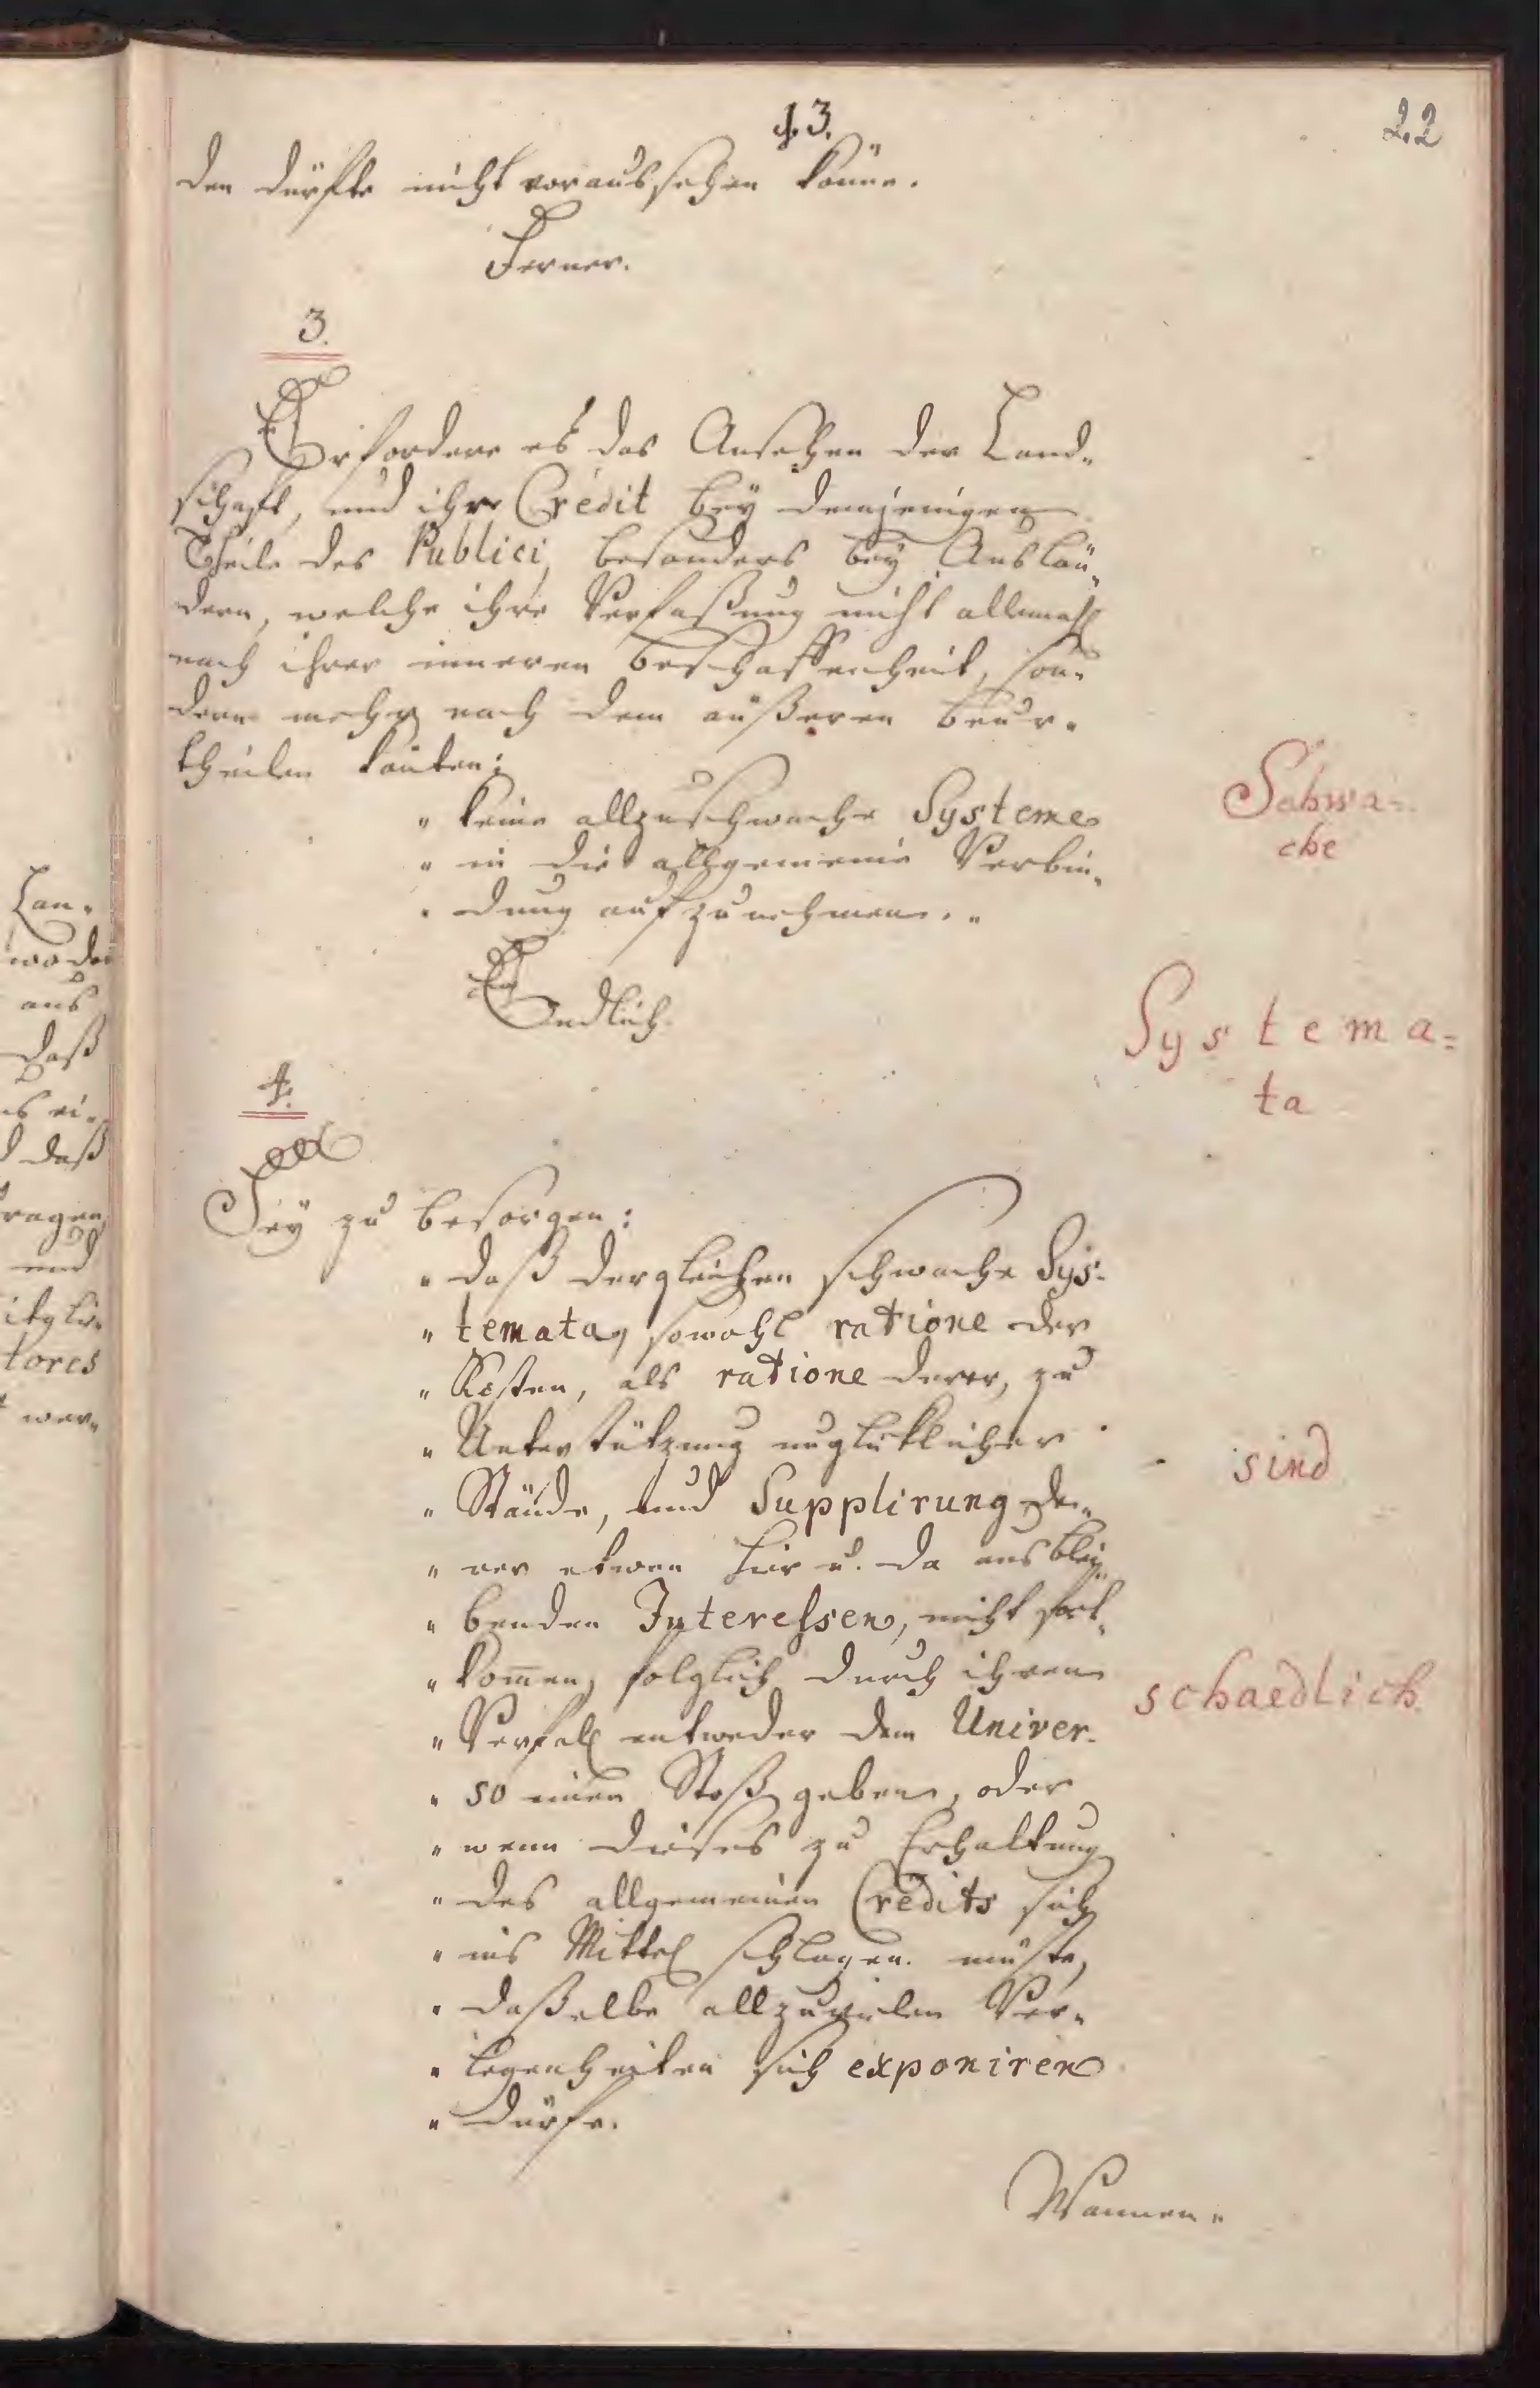 43.
22
den dürfte nicht voraussehen könne.
Ferner.
3.
Erfordere es das Ansehen der Land-
schaft, und ihr Credit bey demjenigen
Theile des Publici, besonders bey Auslän-
dern, welche ihre Verfaßung nicht allemahl
nach ihrer inneren Beschaffenheit, son-
dern mehr nach dem äußeren beur-
theilen könten;
" keine allzuschwache Systeme
" in die allgemeine Verbin-
" dung aufzunehmen. "
Schwa=
che
Endlich
Systema=
ta
4.
Sey zu besorgen:
" daß dergleichen schwache Sys-
" temata, sowohl ratione der
" Kosten, als ratione derer, zu
" Unterstützung unglüklicher
" Stände, und Supplirung de-
" rer etwan hier u. da ausblei-
" benden Interessen, nicht fort-
" kom̄en, folglich durch ihren
" Verfall entweder dem Univer-
" so einen Stoß geben, oder
" wenn dieses zu Erhaltung
" des allgemeinen Credits sich
" ins Mittel schlagen müste,
" daßelbe allzuvielen Ver-
" legenheiten sich exponiren
" dürfe.
sind
schaedlich
Wannen-
Lan-
wo der
aus
daß
ei-
daß
und
tores
wer-